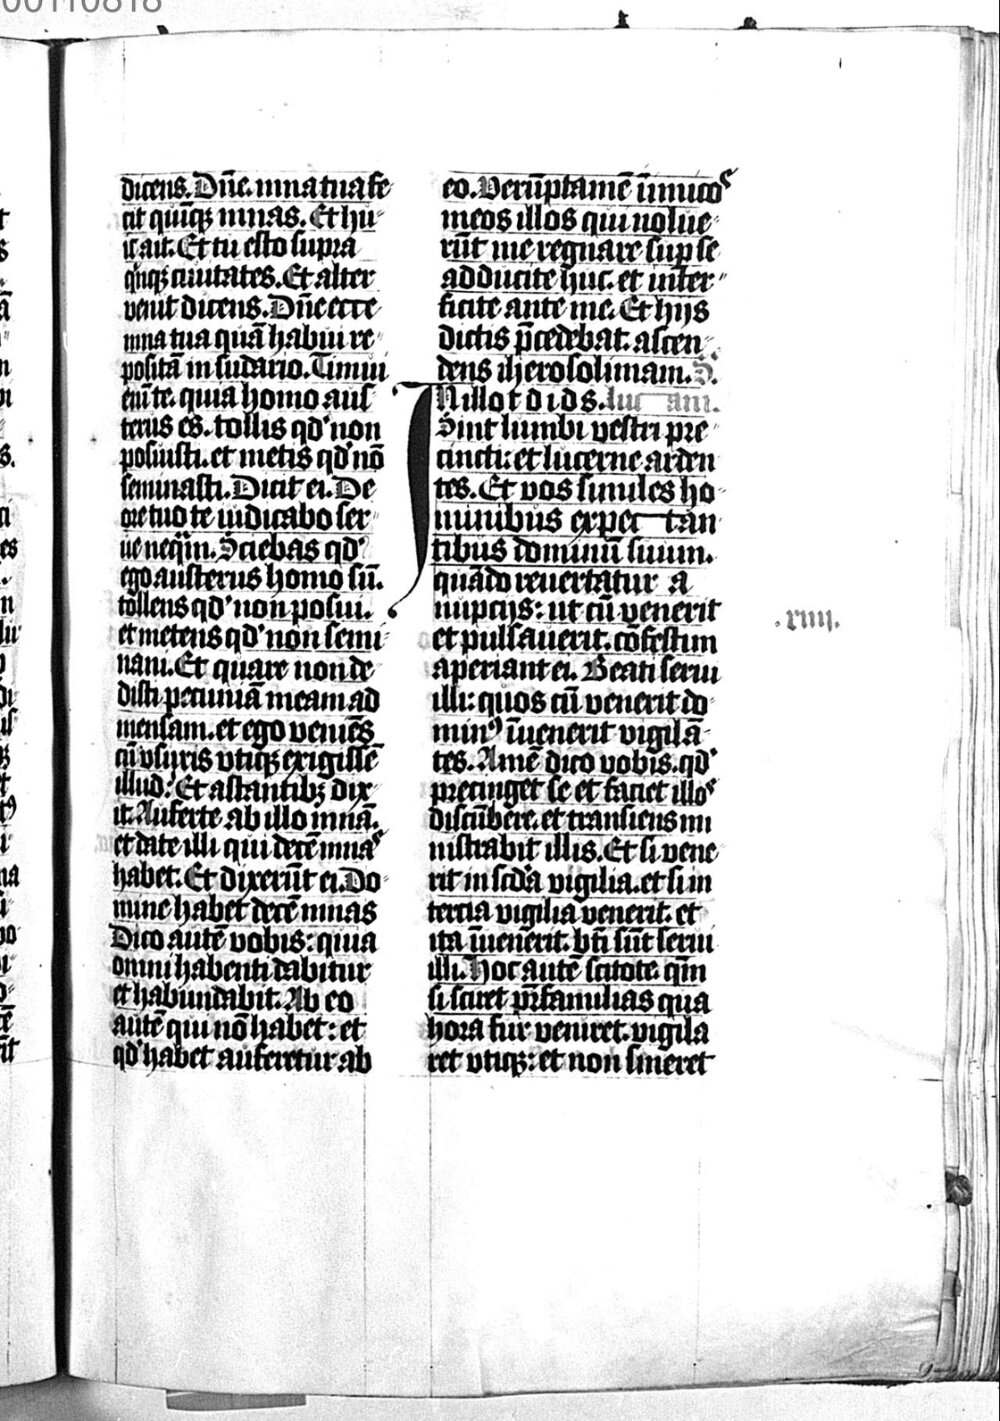 00110818
dicens. Dn̄e. mna tua fe
cit quinq; mnas. Et hu
ic ait. Et tu esto supra
q̍nq; ciuitates. Et alter
venit dicens. Dn̄e ecce
mna tua quā habui re
positā in sudario. Timui
eni̅ te. quia homo aus
terus es. tollis qd̍ non
posuisti. et metis qd̍ nō
seminasti. Dicit ei. De
ore tuo te iudicabo ser
ue neq̄m. Sciebas qd̍
ego austerus homo su̅.
tollens qd̍ non posui.
et metens qd̍ non semi
naui. Et quare non de
disti pecuniā meam ad
mensam. et ego venie̅s
cu̅ vsuris vtiq; exigisse̅
illud. Et astantib; dix
it. Auferte ab illo mnā.
et date illi qui dece̅ mnas
habet. Et dixeru̅t ei. Do
mine habet dece̅ mnas
Dico aute̅ vobis: quia
omni habenti dabitur
et habundabit. Ab eo
aute̅ qui nō habet: et
qd̍ habet auferetur ab
eo. Veru̅ptame̅ i̅imicos
meos illos qui nolue
ru̅t me regnare sup̱ se
adducite huc. et inter
ficite ante me. Et hijs
dictis p̄cedebat. ascen
dens iherosolimam. S.
IN illo t̄ d i d s. luc am.
Sint lumbi vestri pre
cincti: et lucerne arden
tes. Et vos similes ho
minibus expectan
tibus dominu̅ suum.
quādo reuertatur a
nupcijs: ut cu̅ venerit
et pulsauerit. cōfestim
aperiant ei. Beati serui
illi: quos cu̅ venerit do
minꝰ i̅uenerit vigilā
tes. Ame̅ dico vobis. qd̍
precinget se et faciet illos
discu̅bere. et transiens mi
nistrabit illis. Et si vene
rit in scd̍a vigilia. et si in
tercia vigilia venerit. et
ita i̅uenerit. bt̄i su̅t serui
illi. Hoc aute̅ scitote. qm̄
si sciret pr̄familias qua
hora fur veniret. vigila
ret vtiq;: et non sineret
.xiiij.